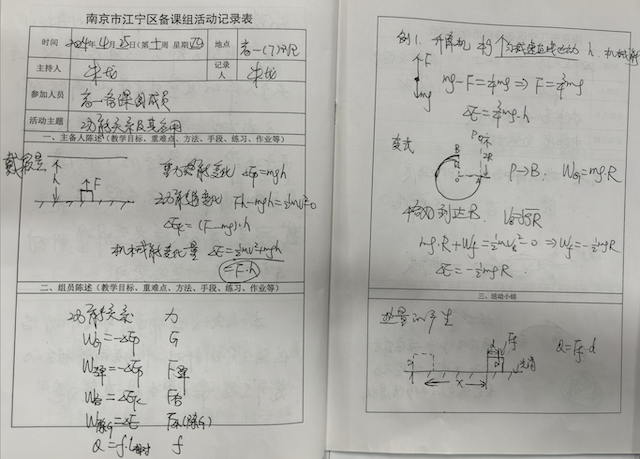 南京市江宁区备课组活动记录表
时间 2024年4月25日(第十周 星期四) 地点 高一(7)
主持人 朱龙 记录人 朱龙
参加人员 高一备课组成员
活动主题 功能关系及其应用
一、主备人陈述(教学目标、重难点、方法、手段、练习、作业等)
h F
重力势能变化 ΔEp=mgh
动能变化 Fh-mgh=½mv²-0
ΔEk=(F-mg)·h
机械能变化量 ΔE=½mv²+mgh
=F·h
二、组员陈述(教学目标、重难点、方法、手段、练习、作业等)
功能关系 力
WG=-ΔEp G
W弹=-ΔEp F弹
W合=ΔEk F合
W除G=ΔE F其(除G)
Q=f·l相对 f
例1.
h 机械能
F
mg
mg-F=
mg⇒F=
mg
ΔE=
mg·h
变式
P
2R
B
P→B. WG=mg·R
恰好到达B. VB=√gR
mg·R+Wf=½mvB²-0⇒Wf=-½mgR
ΔE=-½mgR
三、活动小结
热量的产生
d Ff
光滑
x
Q=Ff·d